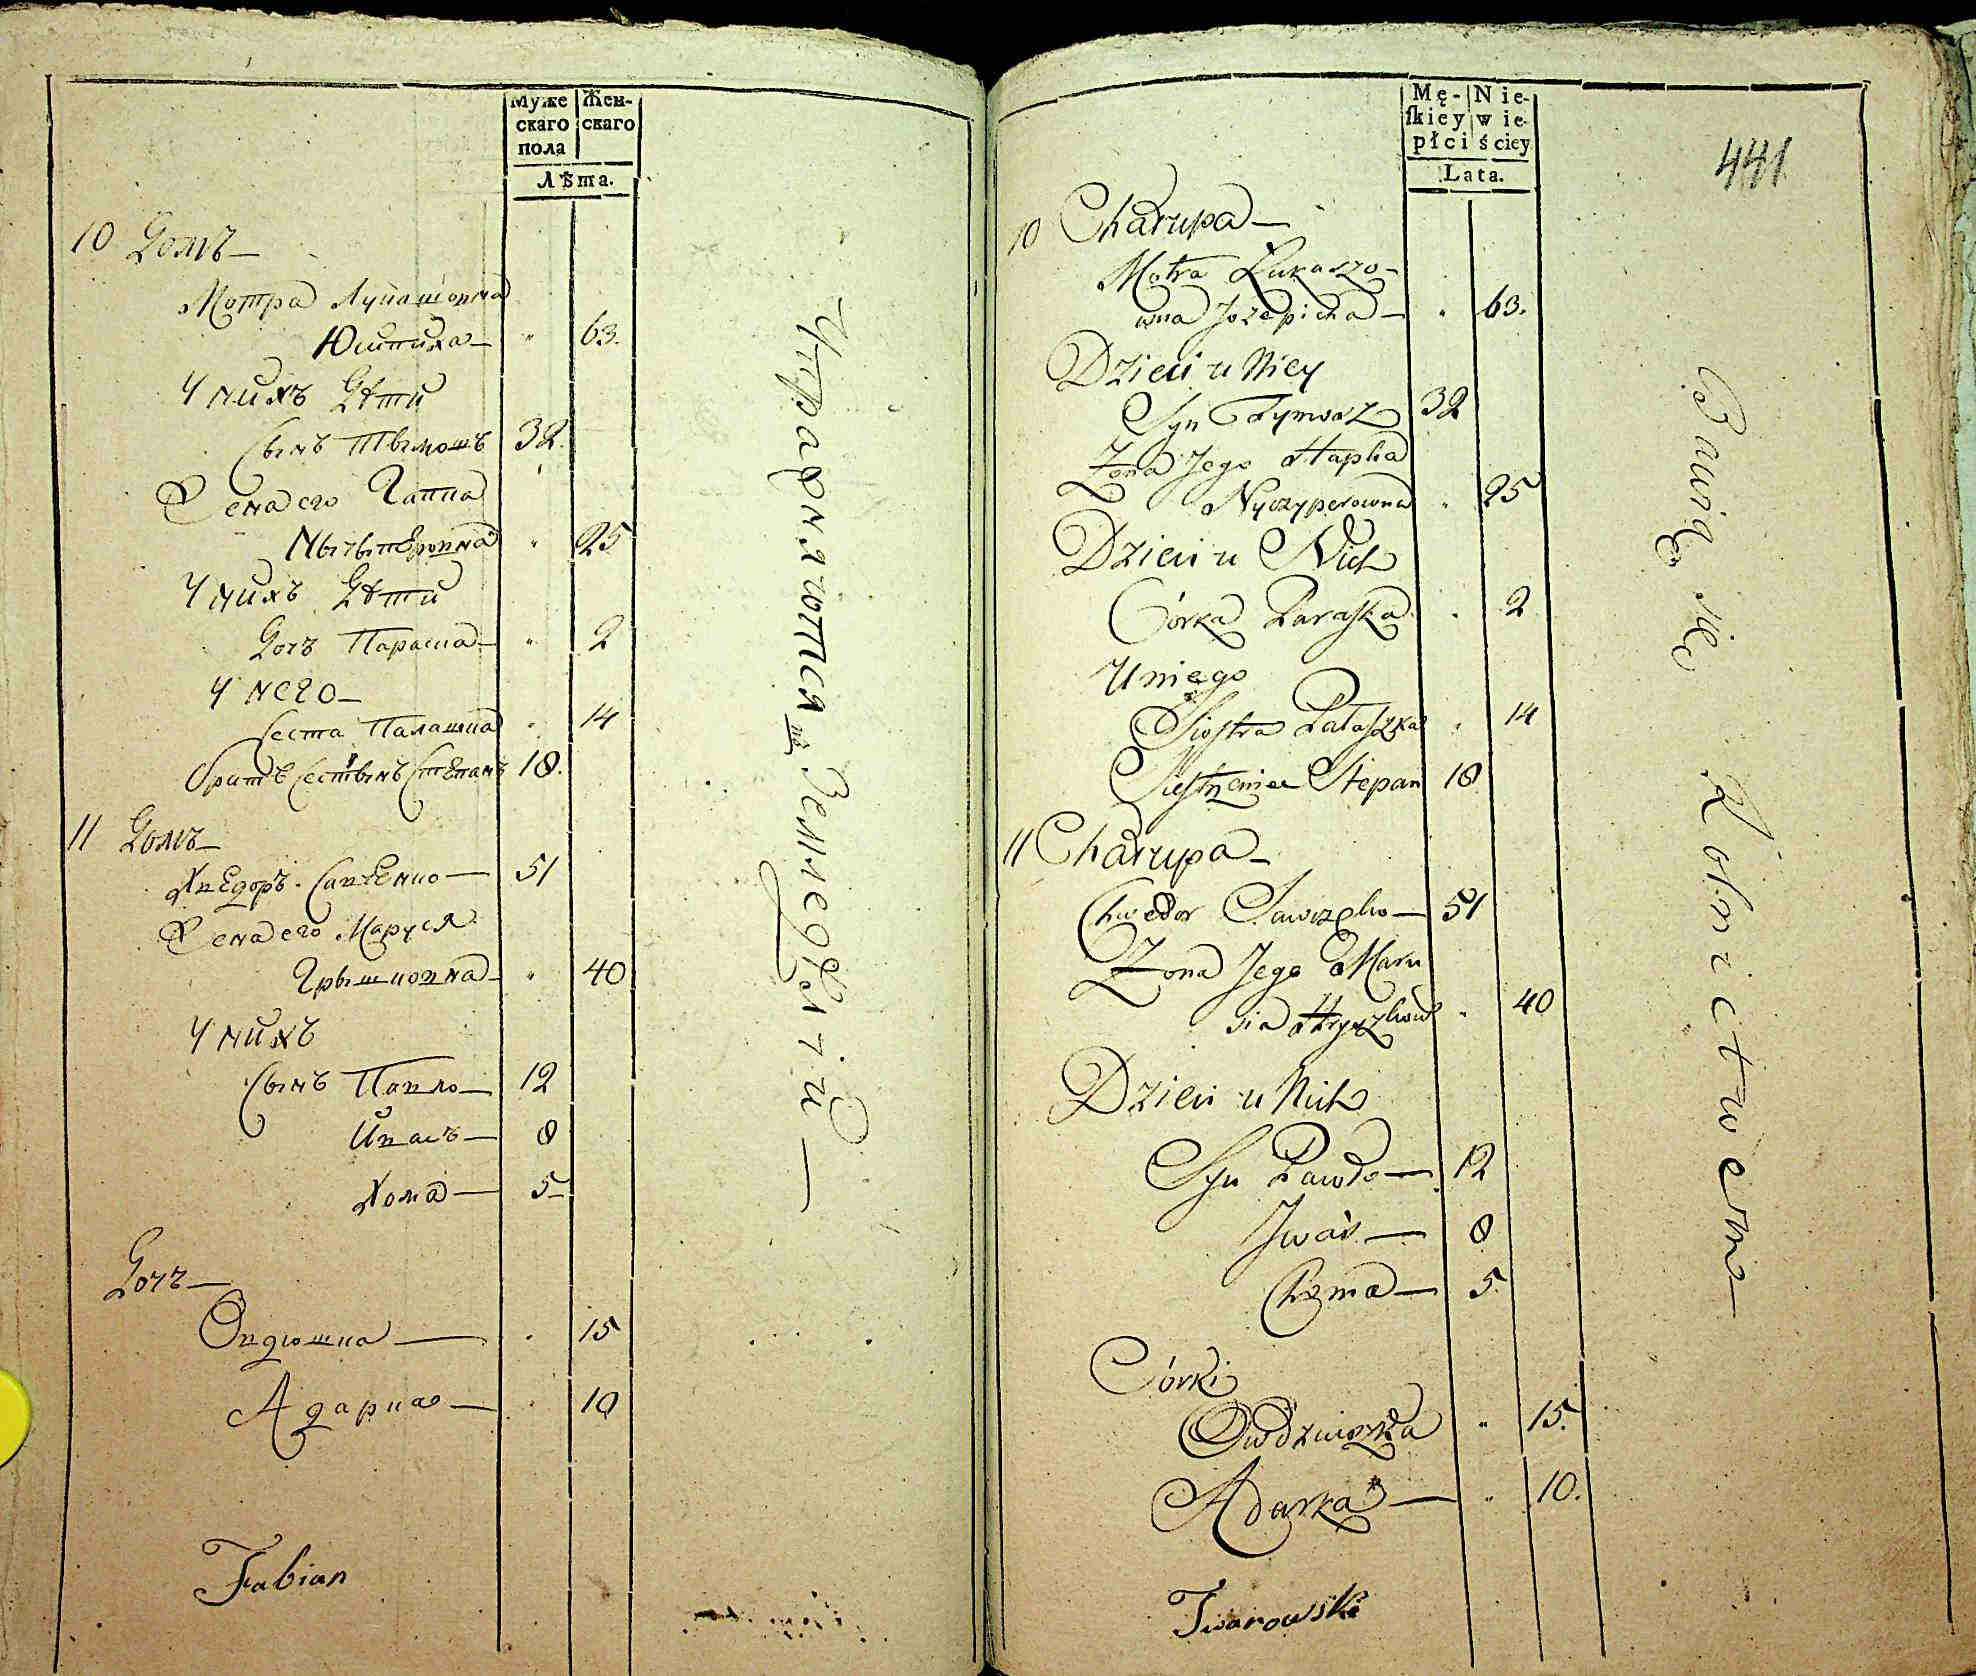 Муже
скаго
пола
Жен-
скаго
Лѣта.
10 Домъ —
Мотра Лукашовна
Юшпиха — " 63.
У нихъ Дѣти
Сынъ Тымошъ 32.
Жена его Гапка
Ныгыперовна " 25
У нихъ Дѣти
Дочъ Параска — " 2
У него —
Сестра Палашка " 14
Братъ Степанъ 18.
11 Домъ —
Хведоръ Савченко — 51
Жена его Маруся
Грышковна — " 40
У нихъ
Сынъ Павло — 12
Ивась — 8
Хома — 5 —
Дочъ —
Овдюшка — " 15
Адарка — " 10
Упражняются въ Земледѣлїи —
Fabian
Mę-
skiey
płci
Nie-
wie-
ściey
Lata.
441
10 Chałupa —
Motra Łukaszo-
wna Jozepicha — " 63.
Dzieci u Niey
Syn Tymosz 32
Żona Jego Hapka
Nyczyperowna " 25
Dzieci u Nich
Córka Paraska " 2
U niego
Siostra Palaszka " 14
Siestrzeniec Stepan 18
11 Chałupa —
Chwedor Sawczeko — 51
Żona Jego Maru
sia Hryszkow " 40
Dzieci u Nich
Syn Pawło — 12
Jwaś — 8
Choma — 5.
Córki
Owdziuszka " 15.
Adarka — " 10.
Bawią się Rolnictwem —
Twarowski